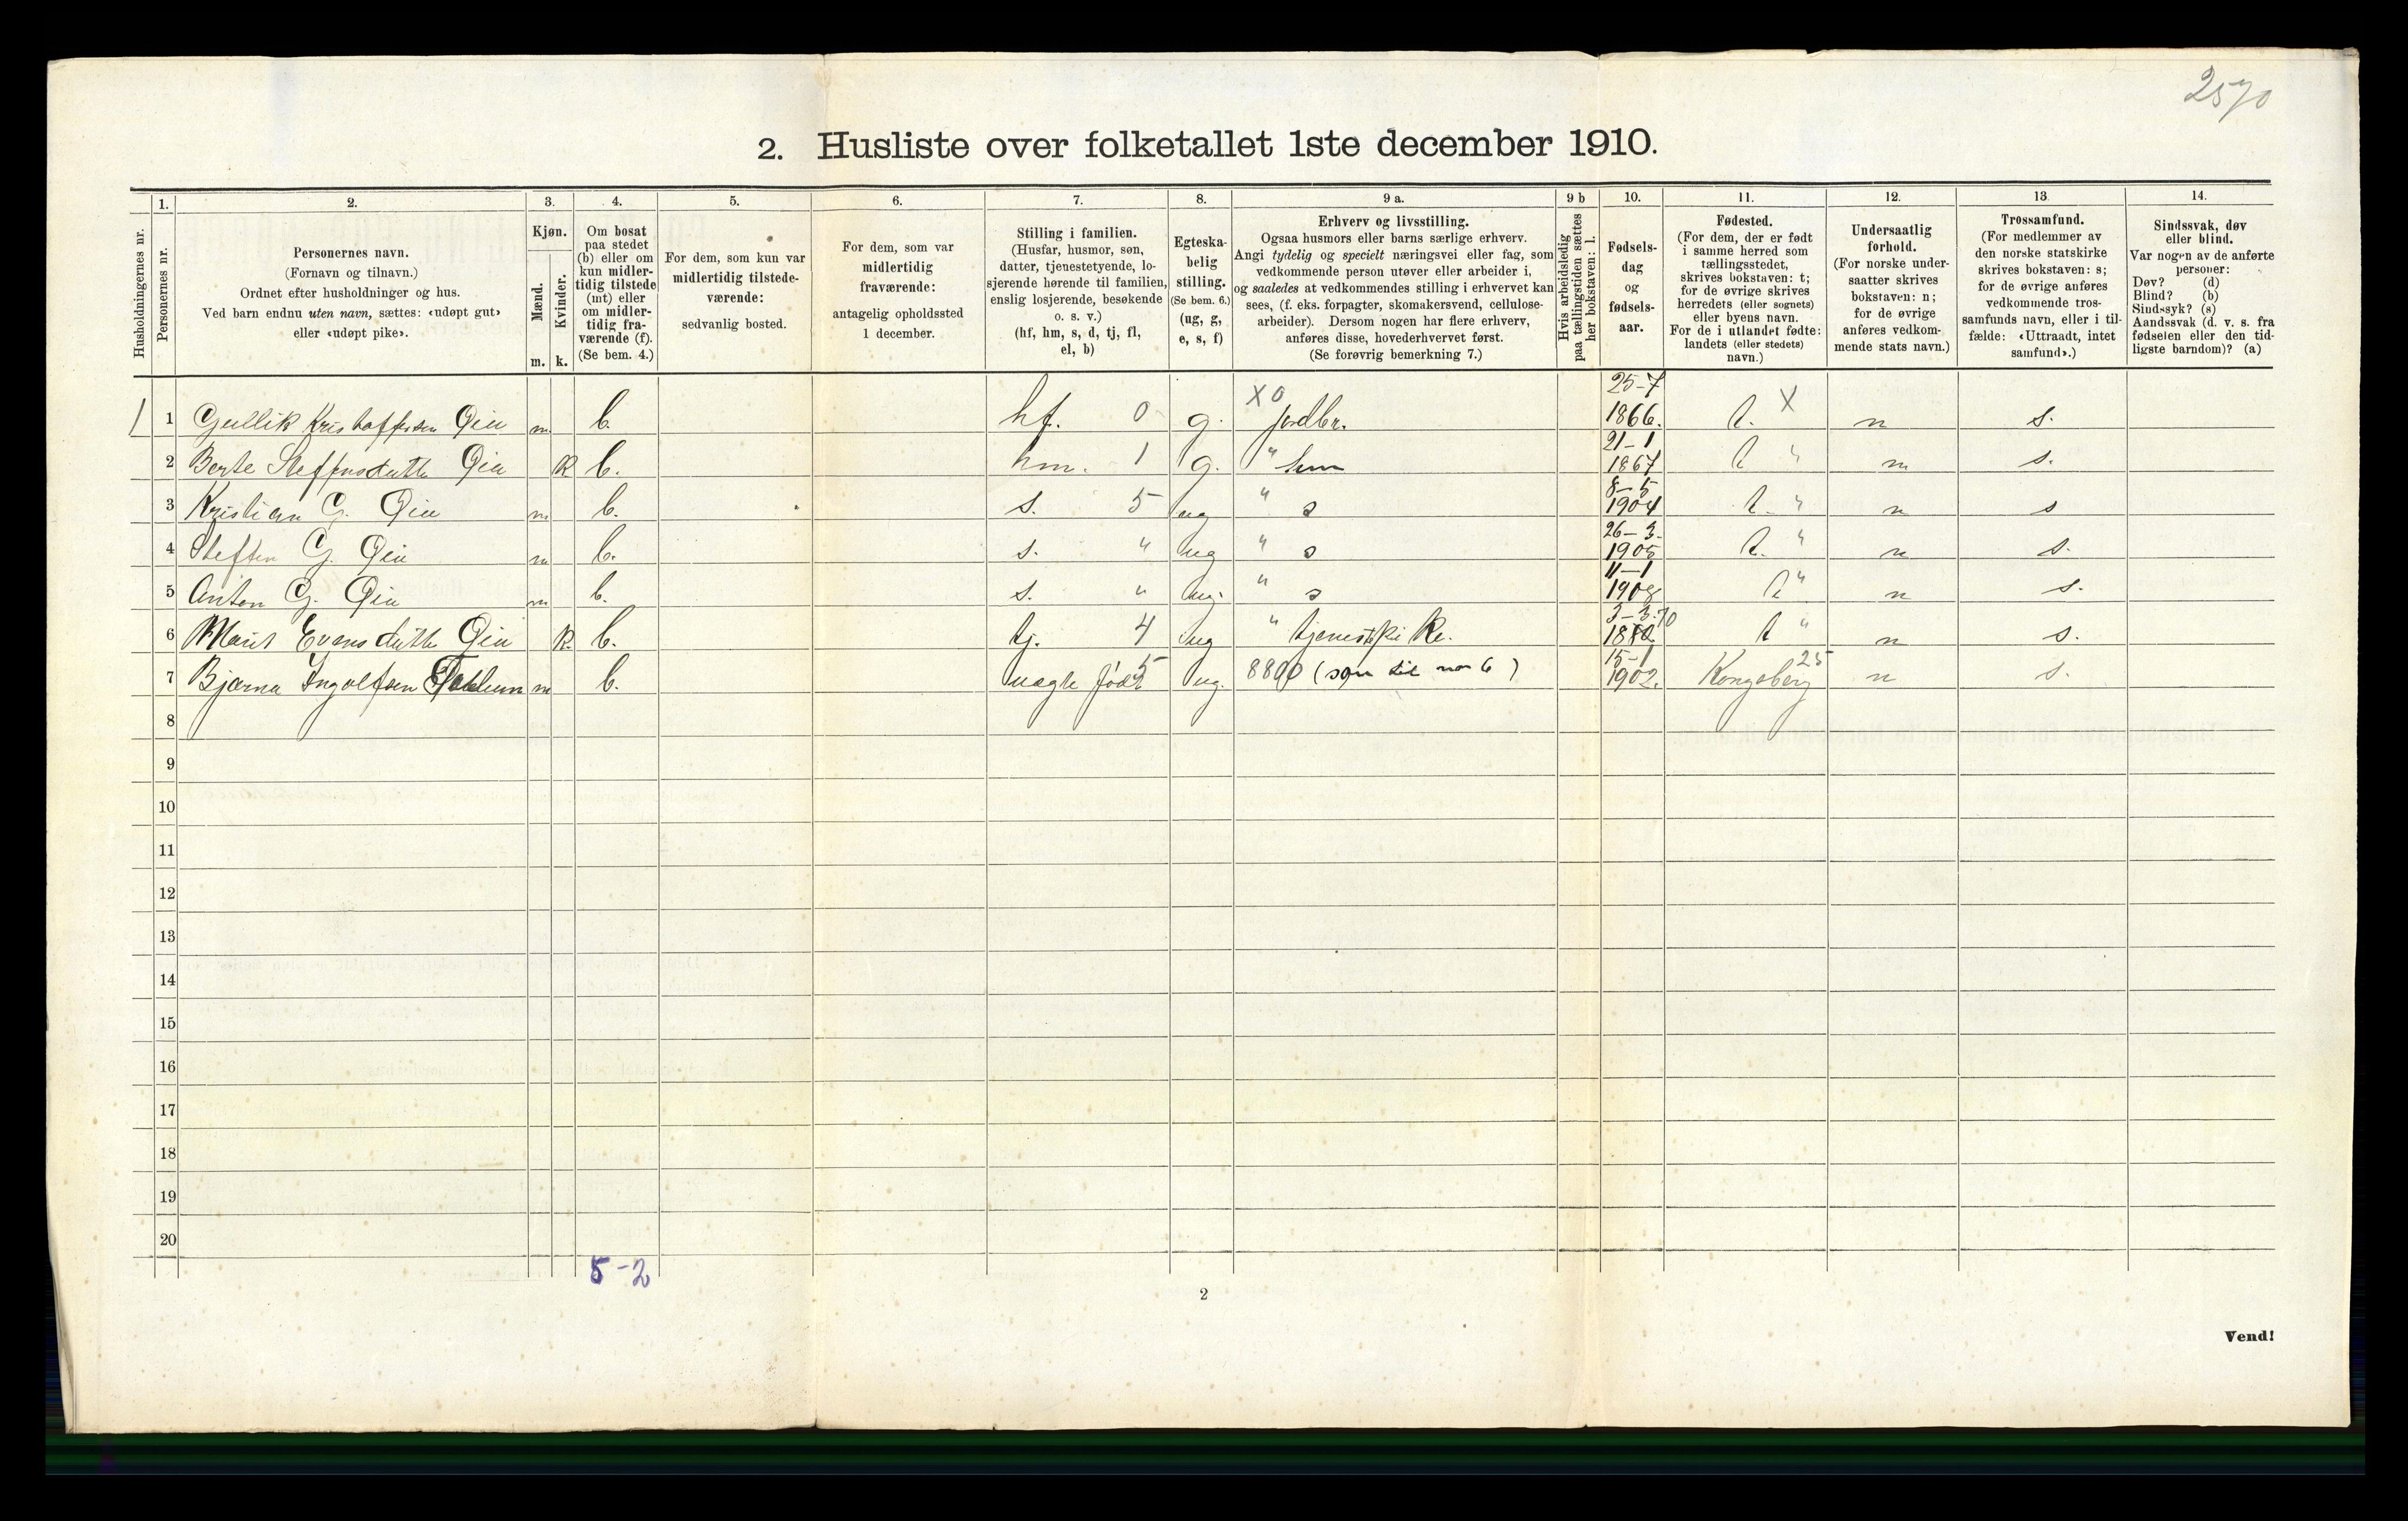 2570
2. Husliste over folketallet 1ste december 1910.
Husholdningernes nr.
1.
Personernes nr.
2.
Personernes navn.
(Fornavn og tilnavn.)
Ordnet efter husholdninger og hus.
Ved barn endnu uten navn, sættes: «udøpt gut»
eller «udøpt pike».
3.
Kjøn.
Mænd.
Kvinder.
m. k.
4.
Om bosat
paa stedet
(b) eller om
kun midler-
tidig tilstede
(mt) eller
om midler-
tidig fra-
værende (f).
(Se bem. 4.)
5.
For dem, som kun var
midlertidig tilstede-
værende:
sedvanlig bosted.
6.
For dem, som var
midlertidig
fraværende:
antagelig opholdssted
1 december.
7.
Stilling i familien.
(Husfar, husmor, søn,
datter, tjenestetyende, lo-
sjerende hørende til familien,
enslig losjerende, besøkende
o. s. v.)
(hf, hm, s, d, tj, fl,
el, b)
8.
Egteska-
belig
stilling.
(Se bem. 6.)
(ug, g,
e, s, f)
9 a.
Erhverv og livsstilling.
Ogsaa husmors eller barns særlige erhverv.
Angi tydelig og specielt næringsvei eller fag, som
vedkommende person utøver eller arbeider i,
og saaledes at vedkommendes stilling i erhvervet kan
sees, (f. eks. forpagter, skomakersvend, cellulose-
arbeider). Dersom nogen har flere erhverv,
anføres disse, hovederhvervet først.
(Se forøvrig bemerkning 7.)
9 b
Hvis arbeidsledig
paa tællingstiden sættes
her bokstaven: l.
10.
Fødsels-
dag
og
fødsels-
aar.
11.
Fødested.
(For dem, der er født
i samme herred som
tællingsstedet,
skrives bokstaven: t;
for de øvrige skrives
herredets (eller sognets)
eller byens navn.
For de i utlandet fødte:
landets (eller stedets)
navn.)
12.
Undersaatlig
forhold.
(For norske under-
saatter skrives
bokstaven: n;
for de øvrige
anføres vedkom-
mende stats navn.)
13
Trossamfund.
(For medlemmer av
den norske statskirke
skrives bokstaven: s;
for de øvrige anføres
vedkommende tros-
samfunds navn, eller i til-
fælde: «Uttraadt, intet
samfund».)
14.
Sindssvak, døv
eller blind.
Var nogen av de anførte
personer:
Døv? (d)
Blind? (b)
Sindssyk? (s)
Aandssvak (d. v. s. fra
fødselen eller den tid-
ligste barndom)? (a)
1 1 Gullik Kristoffersen m b. hf. 0 g. X0 Jordbr. 25-7 1866. t. X n s.
2 Berte Steffensdatter k b. hm. 1 g. " hm 21-1 1867 t " n s.
3 Kristian G. m b. s. 5 ug " s 8-5 1904 t. " n s
4 Steffen G. m b. s. " ug " s 26-3. 1905 t. " n s.
5 Anton G. m b. s. " ug. " s 11-1 1908 t " n s.
6 Marit k. b. tj. 4 ug " tjenestpike. 3-3. t " n s.
7 Bjarne Ingolfsen m b. uægte født 5 ug. 8800 (søn til no 6) 15-1 1902. Kongsberg 25 n s.
8
9
10
11
12
13
14
15
16
17
18
19
20
5-2
2
Vend!